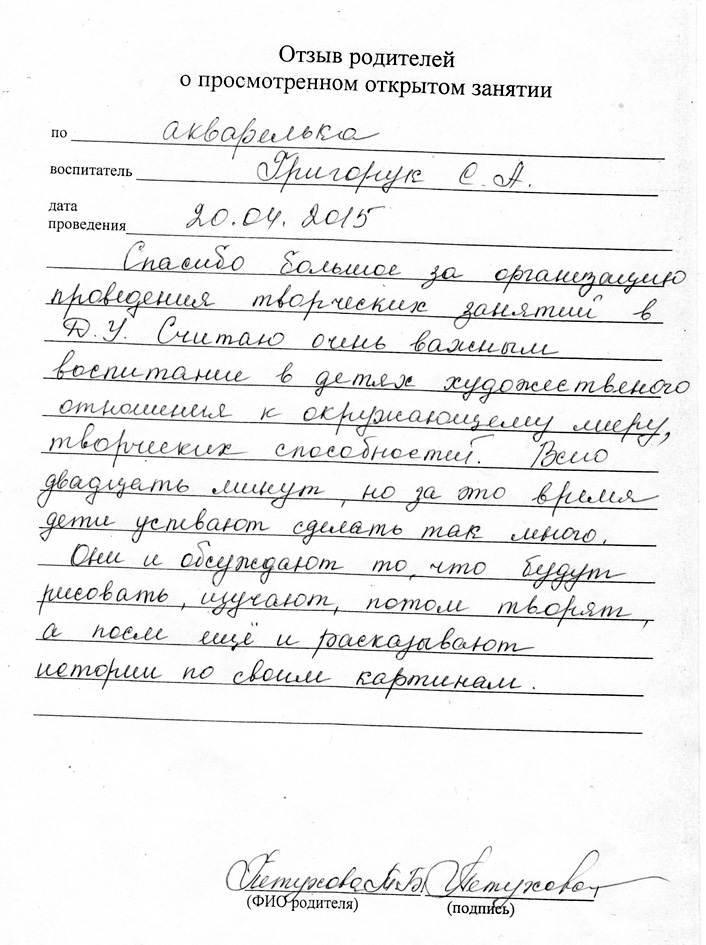 Отзыв родителей
о просмотренном открытом занятии
по акварелька
воспитатель Григорук С. А.
дата
проведения 20.04.2015
Спасибо большое за организацию
проведения творческих занятий в
Д.У. Считаю очень важным
воспитание в детях художественого
отношения к окружающему миру,
творческих способностей. Всего
двадцать минут, но за это время
дети успевают сделать так много.
Они и обсуждают то, что будут
рисовать, изучают, потом творят,
а после ещё и расказывают
истории по своим картинам.
Петухова М.В. Петухова
(ФИО родителя) (подпись)